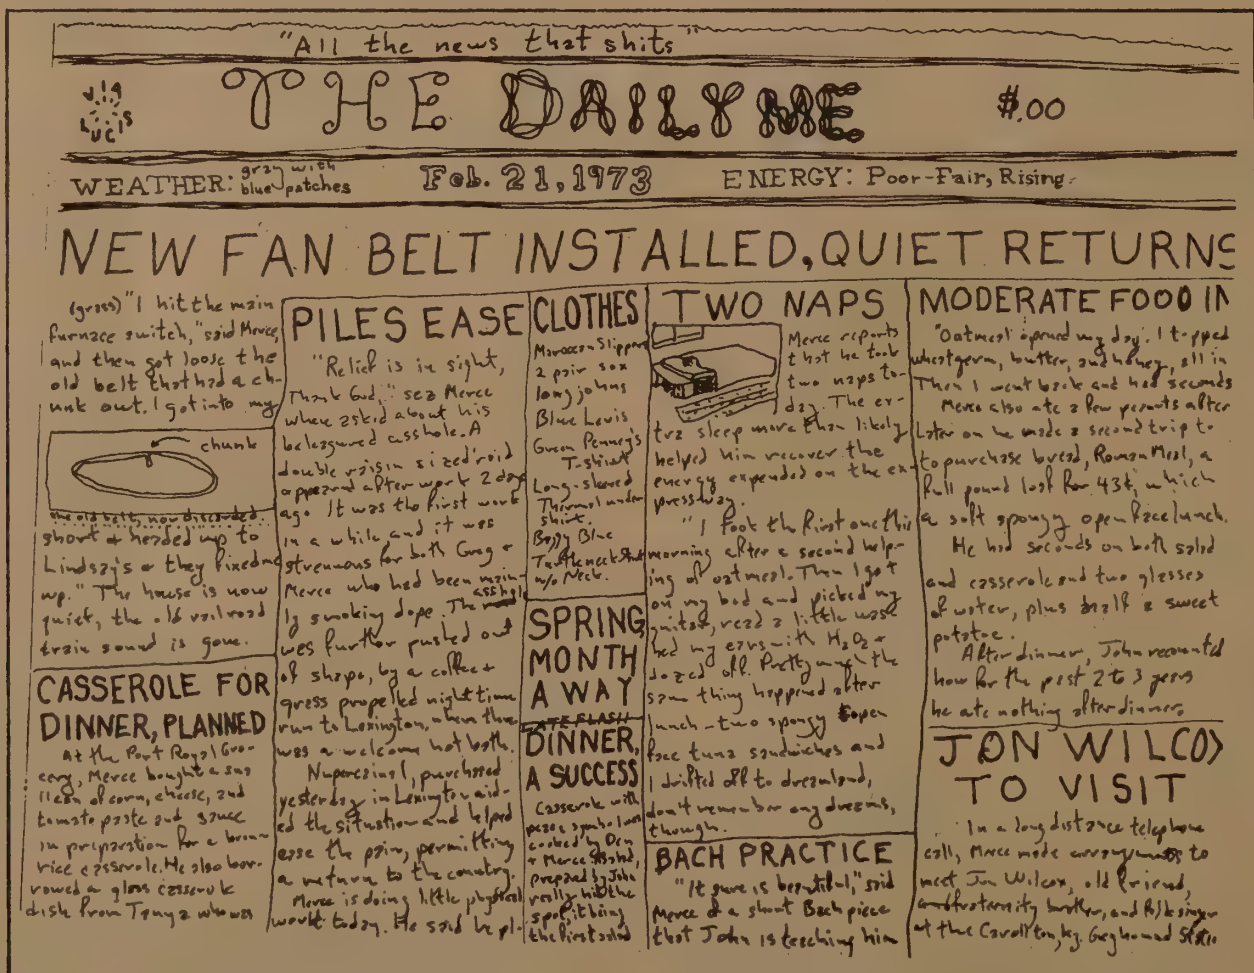 "All the news that shits"
via
lucis
THE DAILY ME
$.00
WEATHER: gray with
blue patches
Feb. 21, 1973
ENERGY: Poor-Fair, Rising
NEW FAN BELT INSTALLED, QUIET RETURNS
(gross) "I hit the main
furnace switch," said Merce,
and then got loose the
old belt that had a ch-
unk out. I got into my
chunk
the old belt, now discarded.
short & headed up to
Lindsay's & they fixed me
up." The house is now
quiet, the old railroad
train sound is gone.
CASSEROLE FOR
DINNER, PLANNED
At the Port Royal Gro-
cery, Merce bought a sma
ll can of corn, cheese, and
tomato paste and sauce
in preparation for a brown
rice casserole. He also bor-
rowed a glass casserole
dish from Tanya who was
PILES EASE
"Relief is in sight,
Thank God," sez Merce
when asked about his
beleagured asshole. A
double raisin sized 'roid
appeared after work 2 days
ago. It was the first work
in a while and it was
strenuous for both Greg &
Merce who had been main-
ly smoking dope. The asshole
was further pushed out
of shape, by a coffee &
grass propelled night time
run to Lexington, when there
was a welcome hot bath.
Nupercainal, purchased
yesterday in Lexington aid-
ed the situation and helped
ease the pain, permitting
a return to the country.
Merce is doing little physical
work today. He said he pl-
CLOTHES
Moroccan Slippers
2 pair sox
long johns
Blue Levis
Green Penney's
T-shirt
Long-sleeved
Thermal under
shirt.
Baggy Blue
Turtleneck Shirt
w/o Neck.
SPRING
MONTH
AWAY
LATE FLASH
DINNER,
A SUCCESS
Casserole with
peace symbol was
cooked by Den
& Merce. Salad,
prepared by John
really hit the
spot, it being
the first salad
TWO NAPS
Merce reports
that he took
two naps to-
day. The ex-
tra sleep more than likely
helped him recover the
energy expended on the ex-
pressway.
"I took the first one this
morning after a second help-
ing of oatmeal. Then I got
on my bed and picked my
guitar, read a little was
hed my ears with H2O2 &
dozed off. Pretty much the
same thing happened after
lunch - two spongy open
face tuna sandwiches and
I drifted off to dreamland,
don't remember any dreams,
though.
BACH PRACTICE
"It sure is beautiful," said
Merce of a short Bach piece
that John is teaching him
MODERATE FOOD IN
"Oatmeal opened my day. I topped
wheatgerm, butter, and honey, all in
Then I went back and had seconds
Merce also ate a few peanuts after
Later on he made a second trip to
to purchase bread, Roman Meal, a
full pound loaf for 43¢, which
a soft spongy open face lunch.
He had seconds on both salad
and casserole and two glasses
of water, plus half a sweet
potatoe.
After dinner, John recounted
how for the past 2 to 3 years
he ate nothing after dinner.
JON WILCOX
TO VISIT
In a long distance telephone
call, Merce made arrangements to
meet Jon Wilcox, old friend,
fraternity brother, and folk singer
at the Carollton, Ky. Greyhound Statio